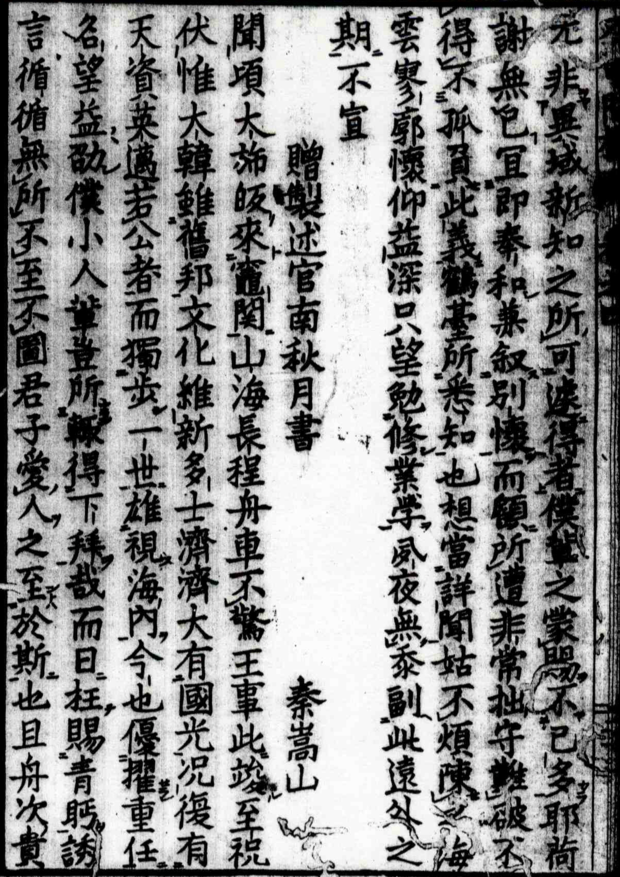 尤非異域新知之所可遽得者僕輩之蒙賜不已多耶荷
謝無已冝即奉和兼叙別懷而顧所遭非常拙守難破不
得不孤負此義鶴臺所悉知也想當詳聞姑不煩陳之海
雲寥廓懷仰益深只望勉修業學夙夜無忝副此遠外之
期不宣
贈製述官南秋月書　秦嵩山
聞頃大斾皈來竈関山海長程舟車不驚王事此竣至祝
伏惟大韓雖舊邦文化維新多士濟濟大有國光况復有
天資英邁若公者而獨步一世雄視海內今也優擢重任
名望益劭僕小人輩豈所輙得下拜哉而日枉賜青眄誘
言循循無所不至不圖君子愛人之至於斯也且舟次貴